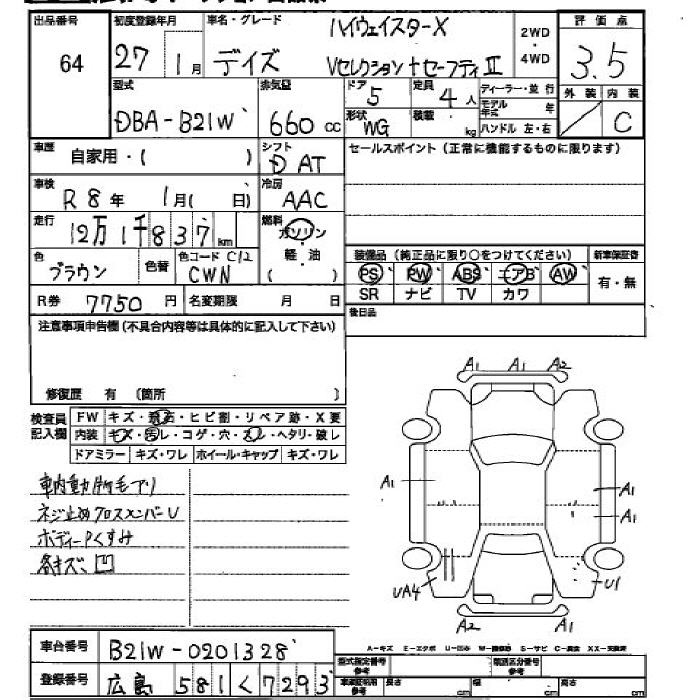 出品番号 64
初度登録年月 27 1月
車名・グレード デイズ ハイウェイスターX Vセレクション+セーフティⅡ
2WD・4WD
評価点 3.5
外装 内装 C
型式 DBA-B21W
排気量 660cc
ドア 5
定員 4人
ディーラー・並行
モデル年式 年
形状 WG
積載 kg
ハンドル 左・右
車歴 自家用・( )
シフト D AT
セールスポイント(正常に機能するものに限ります)
車検 R8年 1月( 日)
冷房 AAC
走行 12万1千837km
燃料 ガソリン・軽油( )
色 ブラウン 色替
色コード C/2 CWN
装備品(純正品に限り○をつけてください) 新車保証書
PS PW ABS エアB AW 有・無
SR ナビ TV カワ
R券 7750円 名変期限 月 日
後日品
注意事項申告欄(不具合内容等は具体的に記入して下さい)
修復歴 有 (箇所 )
検査員記入欄
FW キズ・飛石・ヒビ割・リペア跡・X要
内装 キズ・汚レ・コゲ・穴・スレ・ヘタリ・破レ
ドアミラー キズ・ワレ ホイール・キャップ キズ・ワレ
A1 A1 A2
車内動物毛アリ
ネジ止めクロスメンバーU
ボディーPくすみ
各キズ、凹
A1 A1
A1
UA4 U1
A2 A1
車台番号 B21W-0201328
登録番号 広島 581 く 7293
A-キズ E-エクボ U-凹み W-補修跡 S-サビ C-腐食 XX-交換済
型式指定番号 参考 類別区分番号 参考
車庫証明用 参考 長さ cm 幅 cm 高さ cm